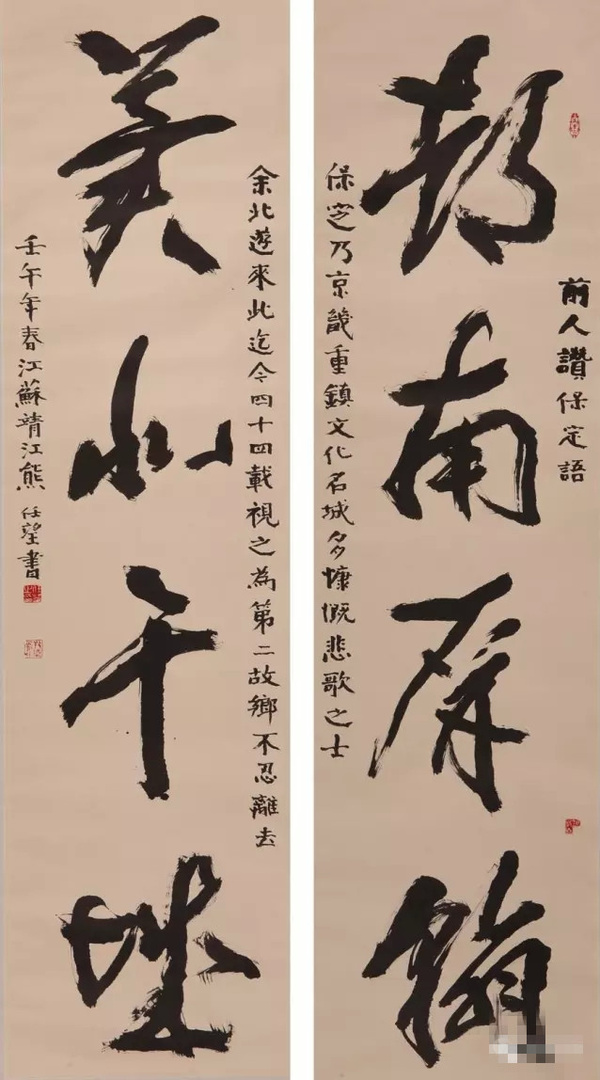 前人讚保定語
都南屏翰
保定乃京畿重鎮文化名城多慷慨悲歌之士
余北遊來此迄今四十四載視之為第二故鄉不忍離去
冀北干城
壬午年春江蘇靖江熊任望書